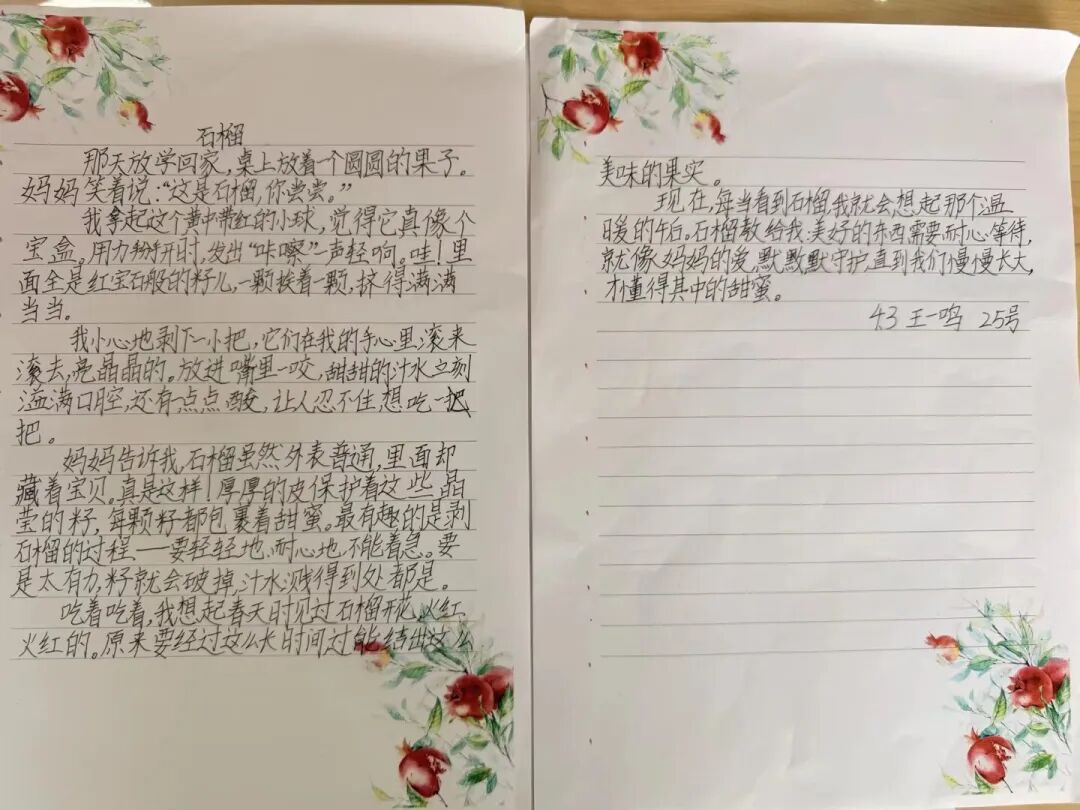 石榴
那天放学回家,桌上放着一个圆圆的果子。
妈妈笑着说:“这是石榴,你尝尝。”
我拿起这个黄中带红的小球,觉得它真像个
宝盒。用力掰开时,发出“咔嚓”一声轻响。哇!里
面全是红宝石般的籽儿,一颗挨着一颗,挤得满满
当当。
我小心地剥下一小把,它们在我的手心里滚来
滚去,亮晶晶的。放进嘴里一咬,甜甜的汁水立刻
溢满口腔,还有一点点酸,让人忍不住想吃一把
把。
妈妈告诉我,石榴虽然外表普通,里面却
藏着宝贝。真是这样!厚厚的皮保护着这些晶
莹的籽,每颗籽都包裹着甜蜜。最有趣的是剥
石榴的过程——要轻轻地,耐心地,不能着急。要
是太有力,籽就会破掉,汁水溅得到处都是。
吃着吃着,我想起春天时见过石榴开花,火红
火红的。原来要经过这么长时间过能结出这么
美味的果实。
现在,每当看到石榴,我就会想起那个温
暖的午后。石榴教给我:美好的东西需要耐心等待,
就像妈妈的爱,默默默守护,直到我们慢慢长大,
才懂得其中的甜蜜。
43 王一鸣 25号